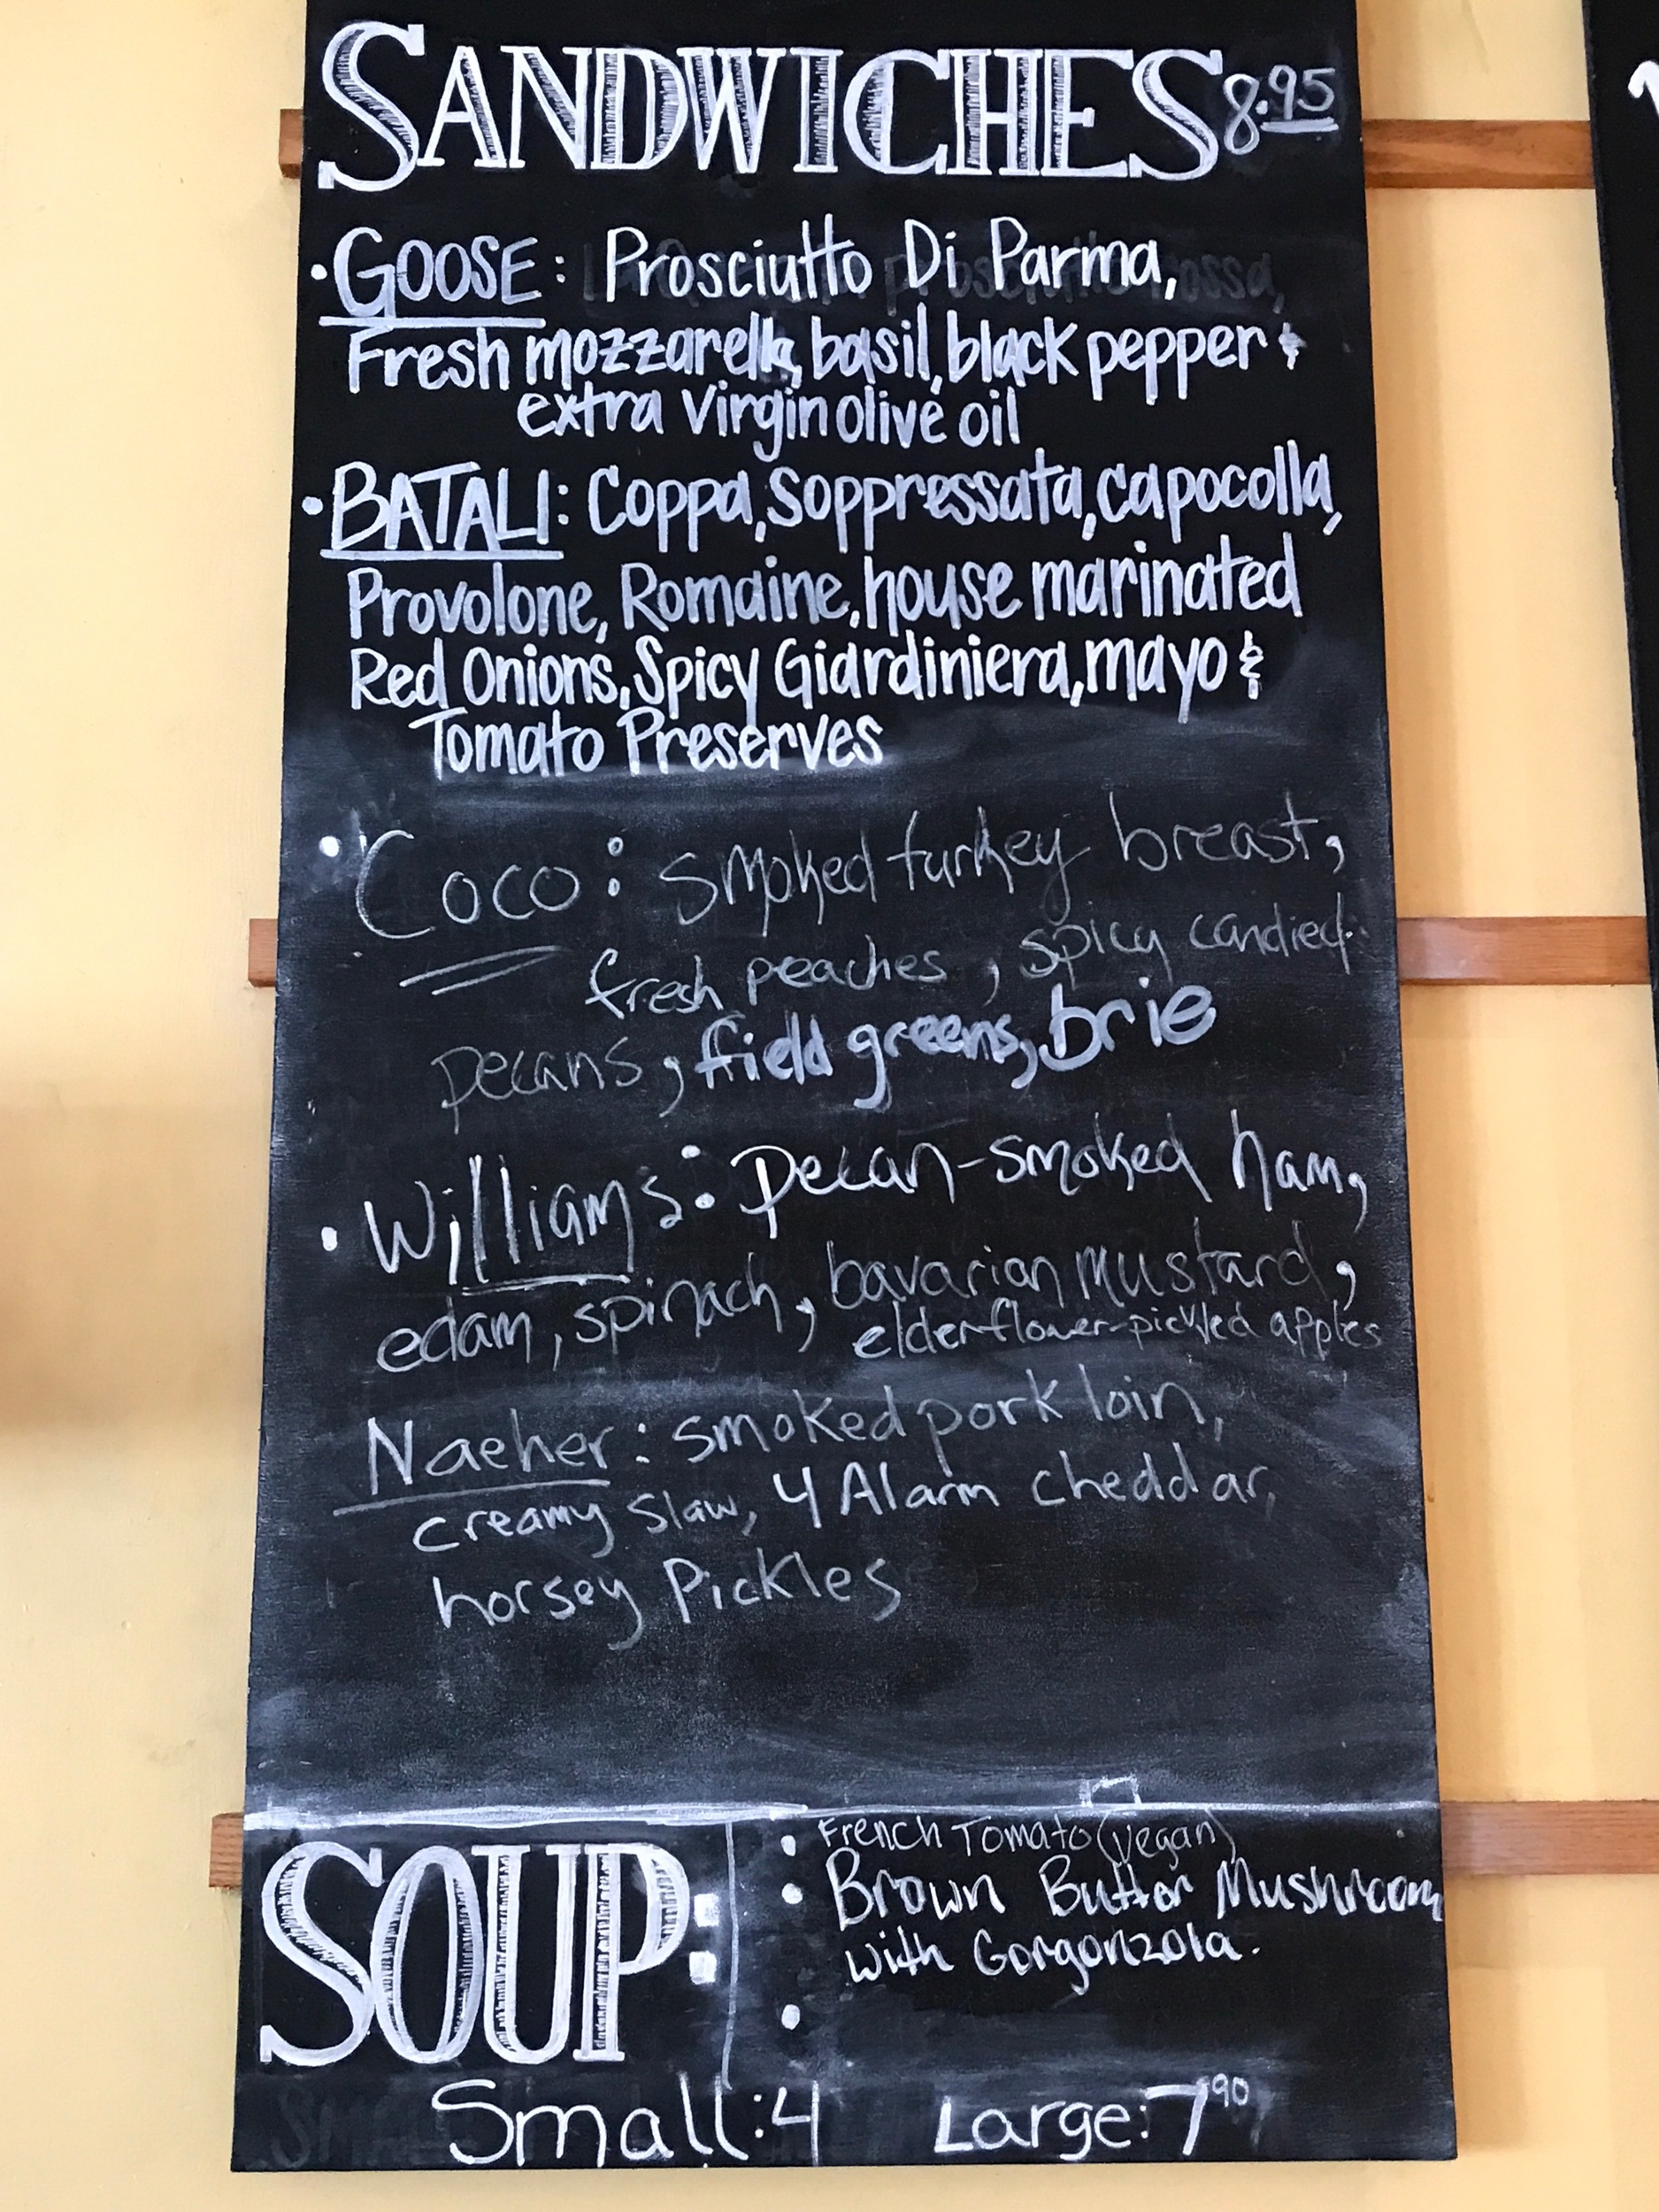 SANDWICHES 8.95
· GOOSE: Prosciutto Di Parma,
Fresh mozzarella, basil, black pepper &
extra virgin olive oil
· BATALI: Coppa, Soppressata, capocolla,
Provolone, Romaine, house marinated
Red Onions, Spicy Giardiniera, mayo &
Tomato Preserves
· Coco: smoked turkey breast,
fresh peaches, spicy candied
pecans, field greens, brie
· Williams: Pecan-smoked ham,
edam, spinach, bavarian mustard,
elderflower-pickled apples
Naeher: smoked pork loin,
creamy slaw, 4 Alarm cheddar,
horsey Pickles
SOUP:
· French Tomato (vegan)
· Brown Butter Mushroom
with Gorgonzola.
·
Small: 4 Large: 7 90